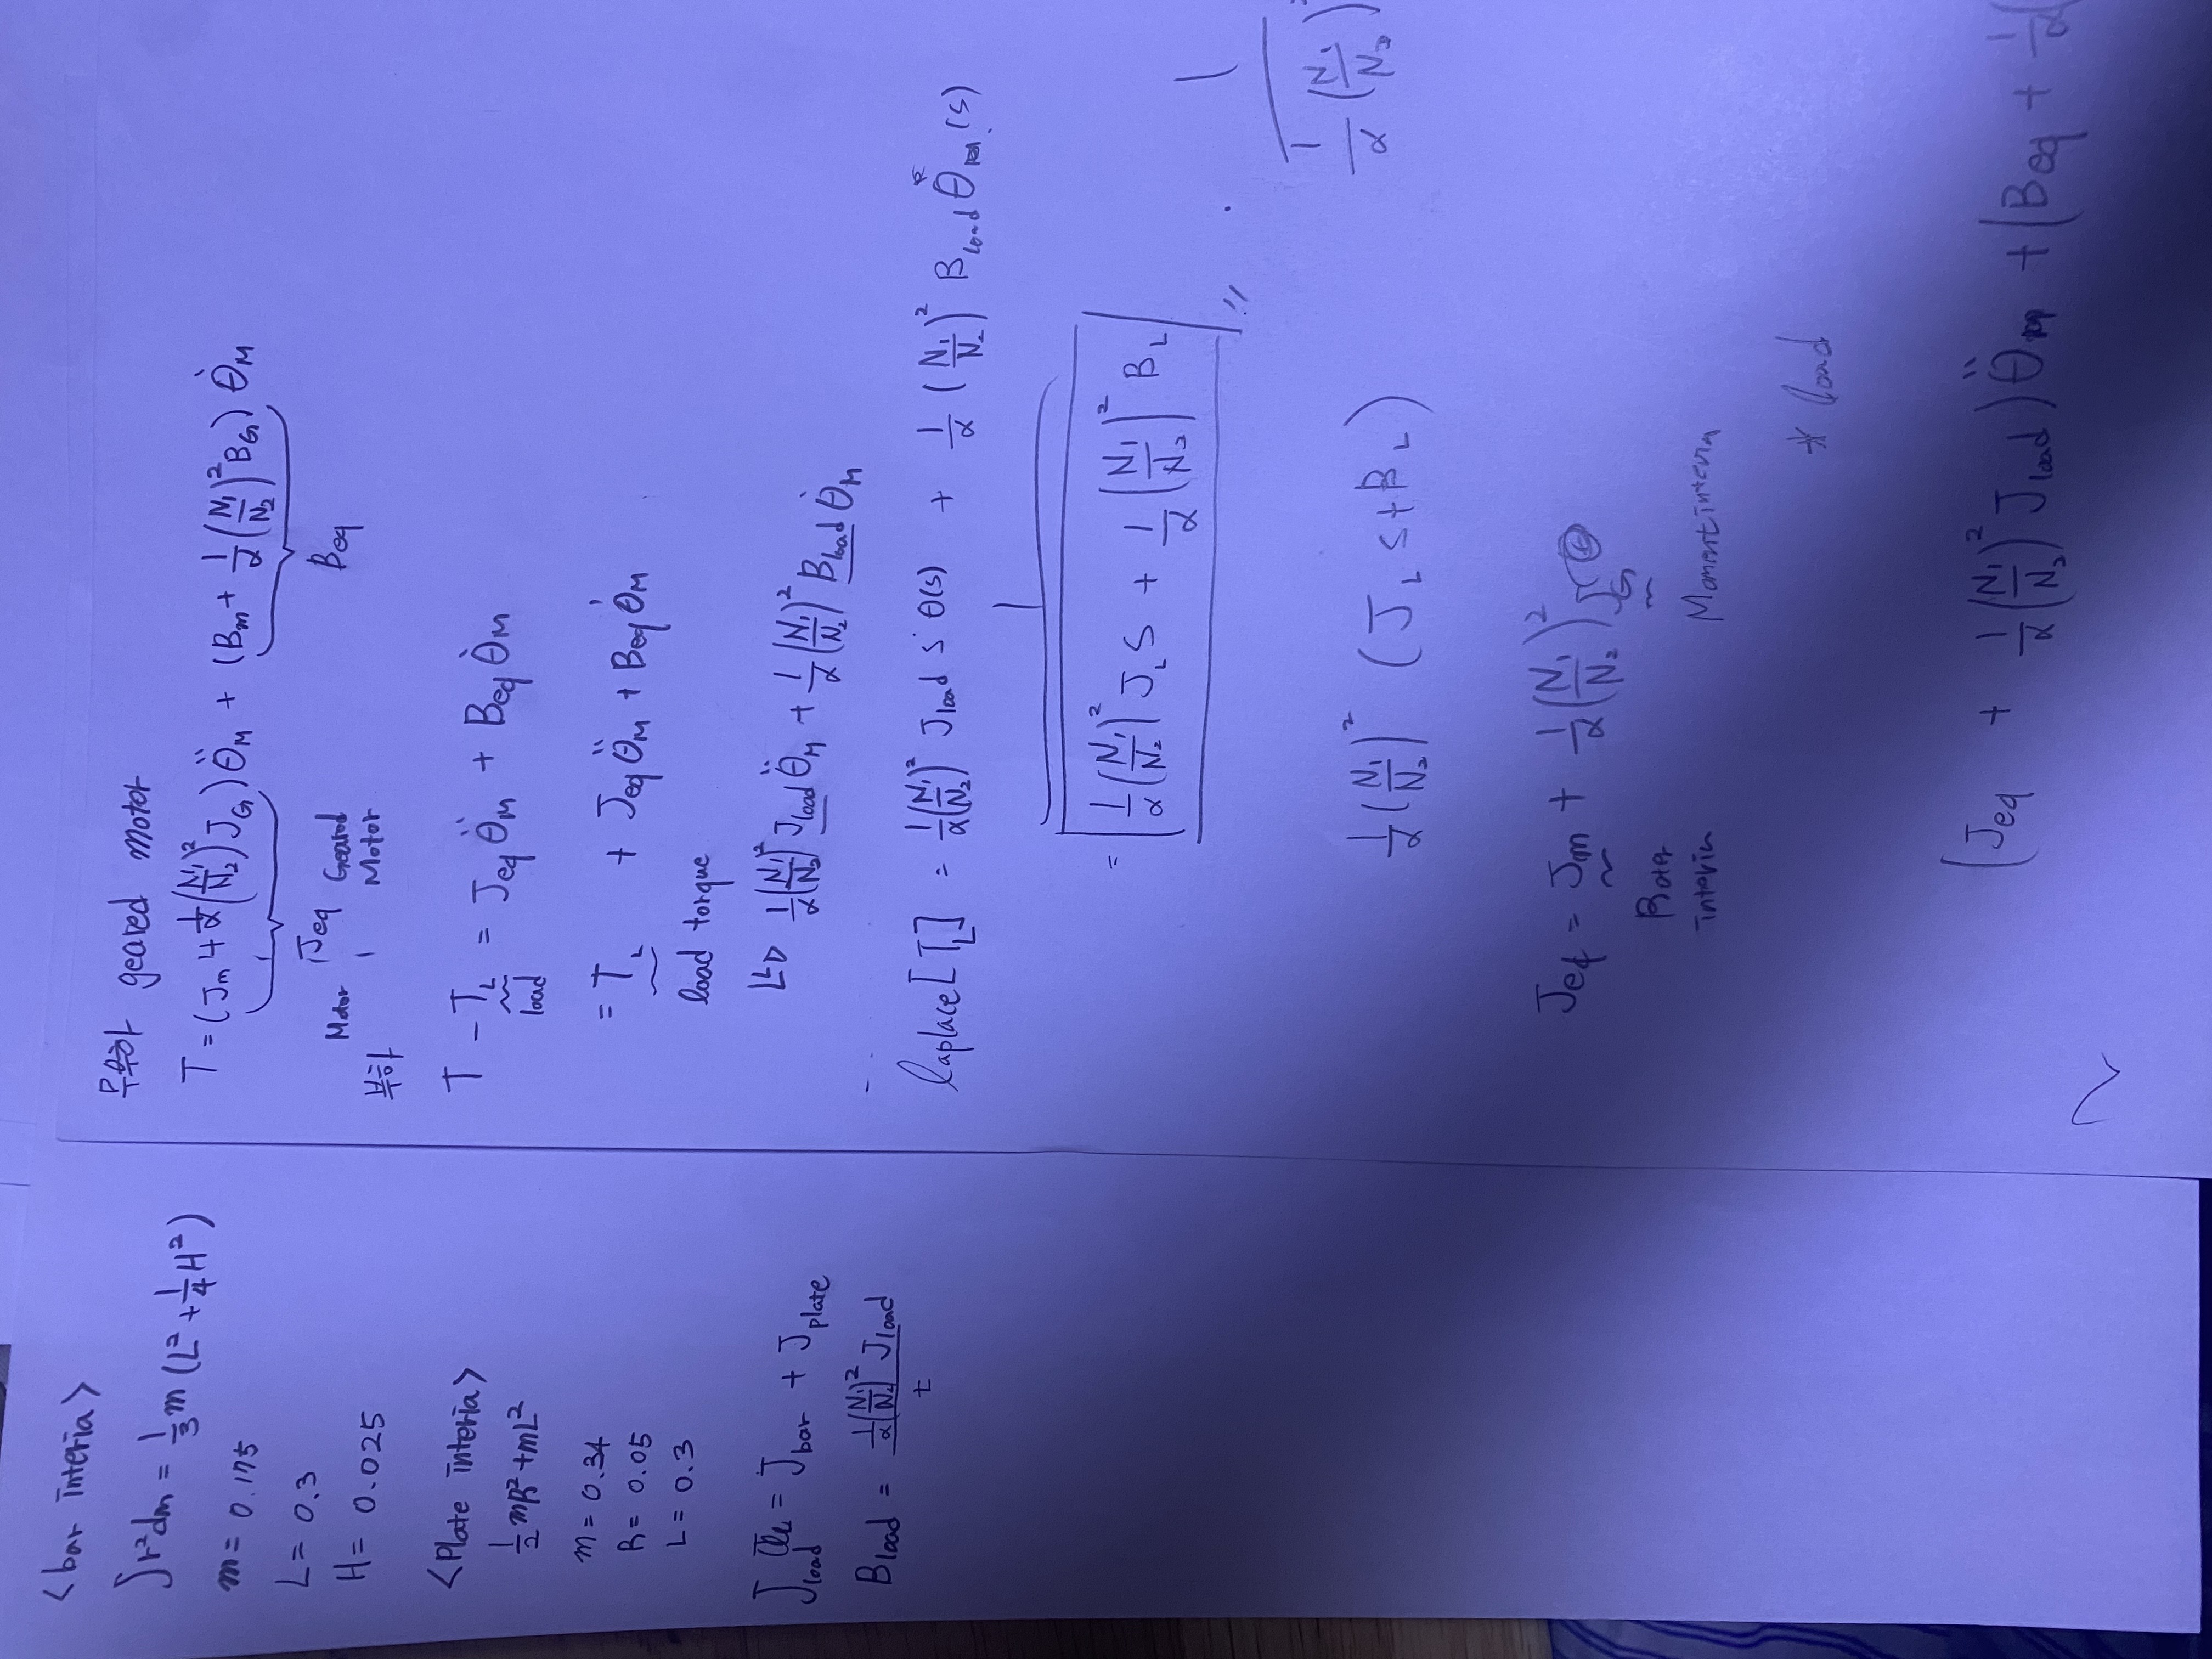 <bar interia>
∫r²dm = 1/3 m (L² + 1/4 H²)
m = 0.175
L = 0.3
H = 0.025
<Plate interia>
1/2 mR² + mL²
m = 0.34
R = 0.05
L = 0.3
J_load = J_bar + J_plate
B_load = (1/α (N₁/N₂)² J_load) / t
geared motor
T = (J_m + 1/α (N₁/N₂)² J_G) θ̈_M + (B_m + 1/α (N₁/N₂)² B_G) θ̇_M
J_eq B_eq
Motor Geared Motor
부하
T - T_L = J_eq θ̈_M + B_eq θ̇_M
load
= T_L + J_eq θ̈_M + B_eq θ̇_M
load torque
1/α (N₁/N₂)² J_load θ̈_M + 1/α (N₁/N₂)² B_load θ̇_M
laplace[T_L] = 1/α (N₁/N₂)² J_load s θ(s) + 1/α (N₁/N₂)² B_load θ̇_m (s)
1
= 1/α (N₁/N₂)² J_L S + 1/α (N₁/N₂)² B_L
1 / 1/α (N₁/N₂)²
1/α (N₁/N₂)² (J_L s + B_L)
J_eq = J_m + 1/α (N₁/N₂)² J_G
interia Moment interia
* load
(J_eq + 1/α (N₁/N₂)² J_load) θ̈_m + (B_eq + 1/α (